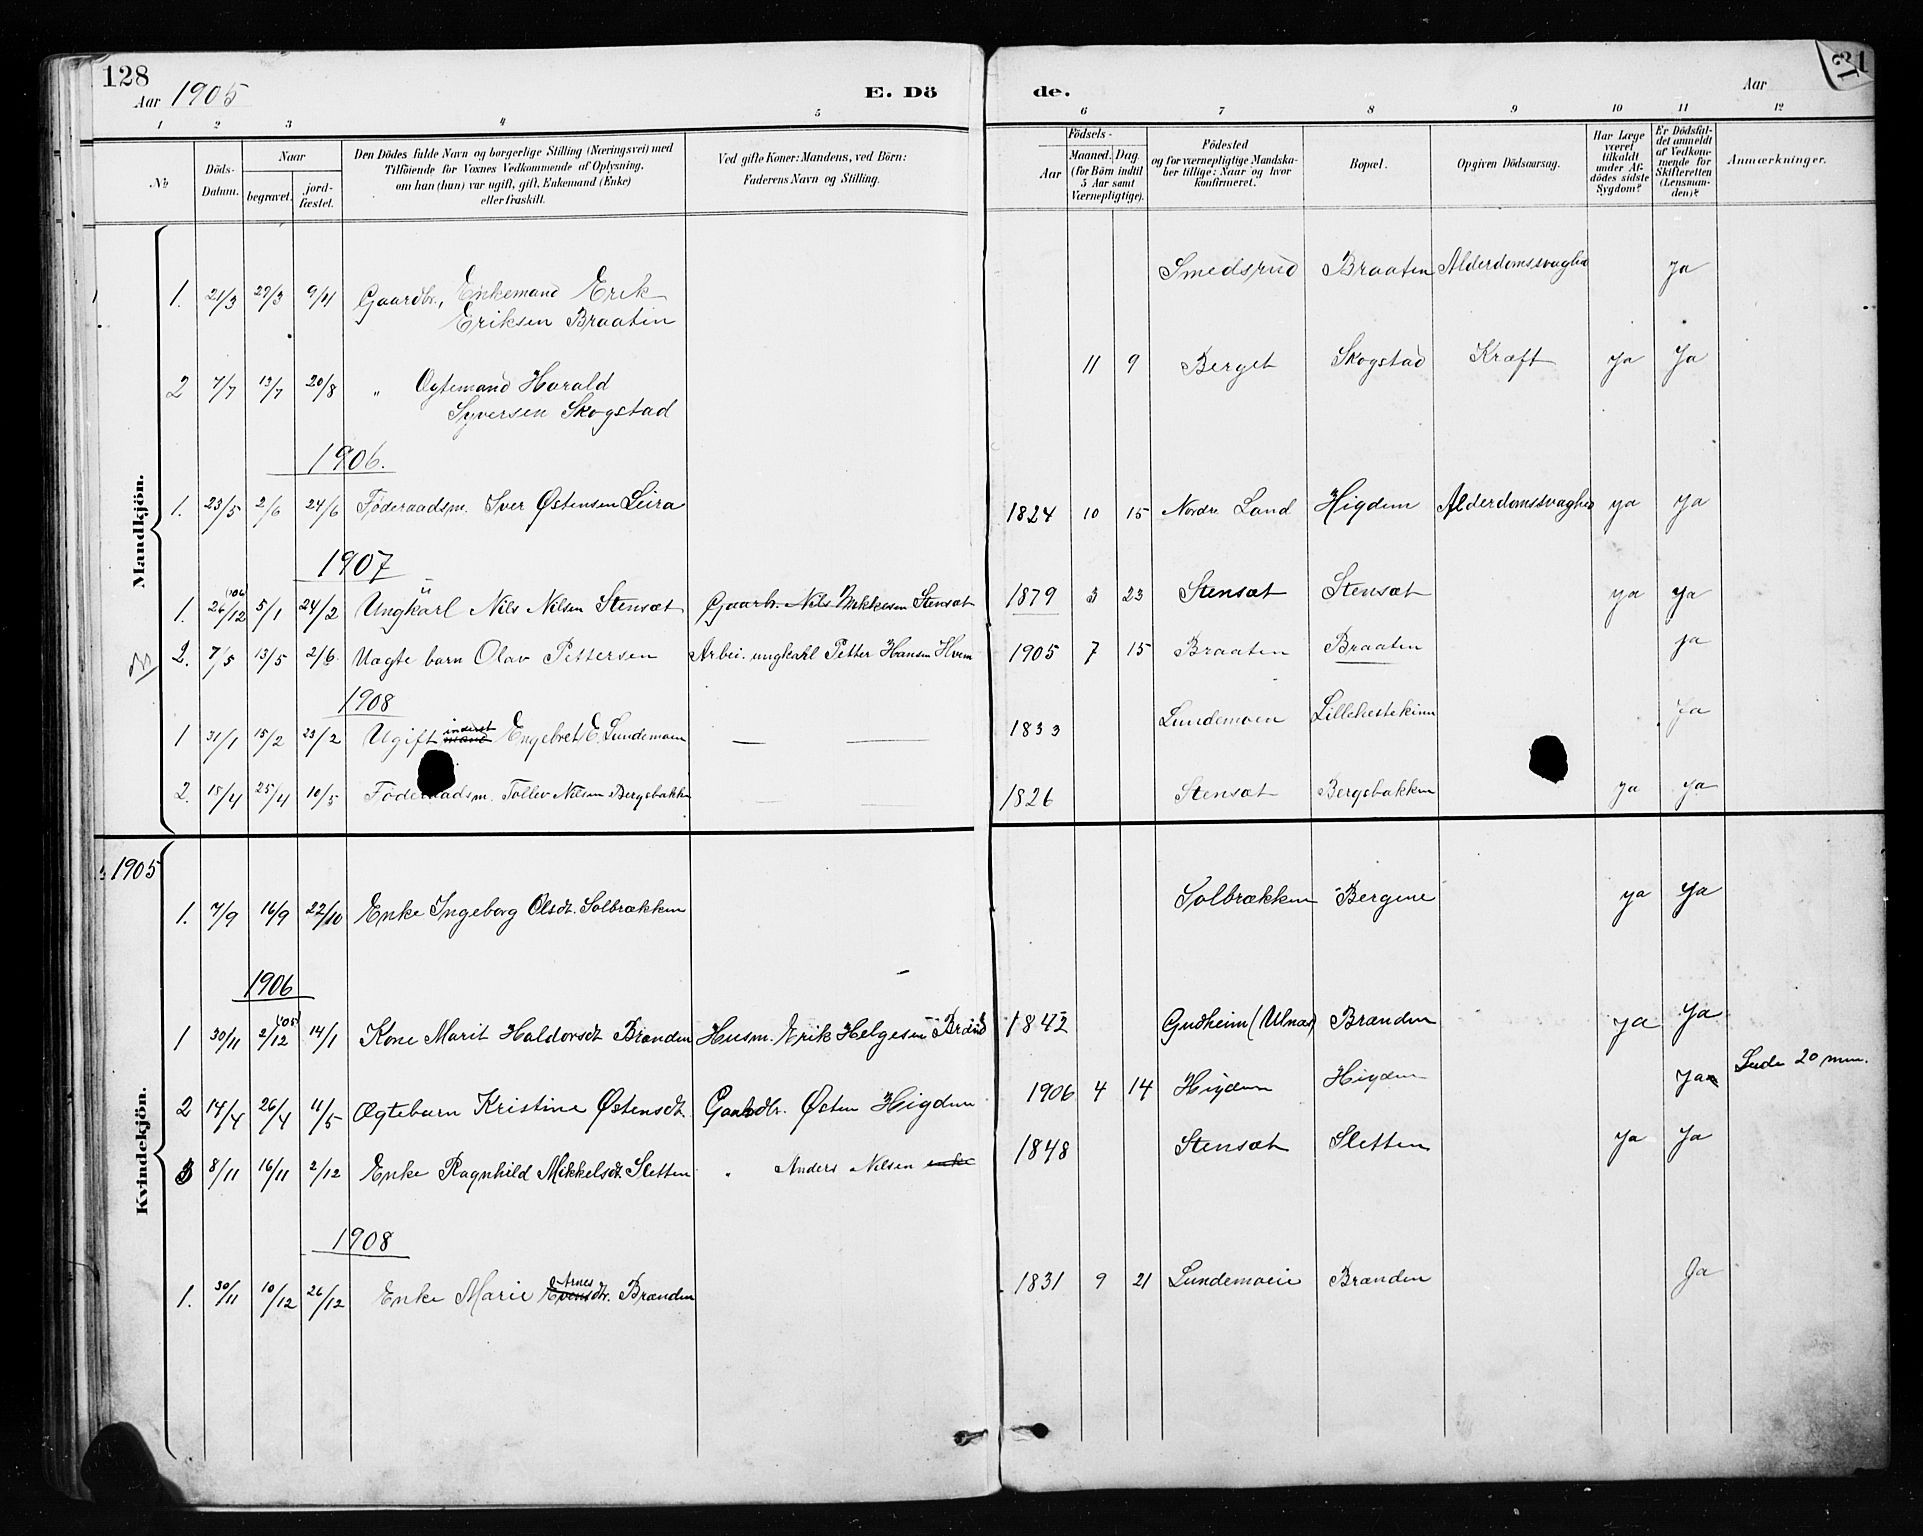 128
Aar 1905
E. Dö
de.
Aar
1 2 3 4 5
6 7 8 9 10 11 12
No
Döds-
Datum.
Naar
begravet.
jord-
fæstet.
Den Dödes fulde Navn og borgerlige Stilling (Næringsvei) med
Tilföiende for Voxnes Vedkommende af Oplysning,
om han (hun) var ugift, gift, Enkemand (Enke)
eller fraskilt.
Ved gifte Koner: Mandens, ved Börn:
Faderens Navn og Stilling.
Födsels-
Aar
Maaned. Dag
(for Börn indtil
5 Aar samt
Værnepligtige).
Födested
og for værnepligtige Mandska-
ber tillige: Naar og hvor
konfirmeret.
Bopæl.
Opgiven Dödsaarsag.
Har Læge
været
tilkaldt
under Af-
dödes sidste
Sygdom?
Er Dödsfal-
det anmeldt
af Vedkom-
mende for
Skifteretten
(Lensman-
den)?
Anmærkninger.
Mandkjön.
1. 21/3 29/3 9/4 Gaardbr., Enkemand Erik
Eriksen Braaten
Smedsrud Braaten Alderdomssvaghed Ja
2 7/7 13/7 20/8 " Ogtemand Harald
Syversen Skogstad
11 9 Berget Skogstad Kræft Ja Ja
1906.
1. 23/5 2/6 24/6 Föderaadsm. Iver Østensen Leira 1824 10 15 Nordre Land Higdem Alderdomssvaghed ya Ja
1907
1. 26/12 (06) 5/1 24/2 Ungkarl Nils Nilsen Stensæt Gaarb. Nils Mikkelsen Stensæt 1879 3 23 Stensæt Stensæt ya Ja
2. 7/5 13/5 2/6 Uægte barn Olav Pettersen Arbei. ungkarl Petter Hansen Hvem 1905 7 15 Braaten Braaten ja
1908
1 31/1 15/2 23/2 Ugift inderst mand Engebret E. Lundemoen — — 1833 Lundemoen Lillehestekinn Ja
2. 15/4 25/4 10/5 Föderaadsm. Tollev Nilsen Bergsbakken — — 1826 Stensæt Bergsbakken ya ya
Kvindekjön.
1905
1. 7/9 16/9 22/10 Enke Ingeborg Olsdt. Solbrækken Solbrækken Bergene ya Ja
1906
1 30/11 2/12 (05) 14/1 Kone Marit Haldorsdt Brænden Husm. Erik Helgesen Brænd 1842 Gudheim (Ulnæs) Brænden ya Ja
2 14/4 26/4 11/5 Ægtebarn Kristine Østensdt. Gaardbr. Østen Higdem 1906 4 14 Higdem Higdem Ja 20 min.
3 8/11 16/11 2/12 Enke Ragnhild Mikkelsdt. Sletten " Anders Nilsen enke 1848 Stensæt Sletten Ja Ja
1908
1. 30/11 10/12 26/12 Enke Marie Evensdtr. Arnes Brænden 1831 9 21 Lundemoeie Brænden Ja